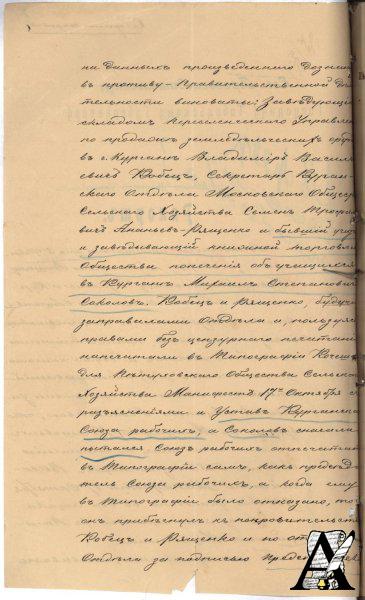 на данныхъ произведеннаго дознан
въ противу-Правительственной дѣя
тельности виноваты: Завѣдующiй
складомъ Переселенческаго Управлен
по продажѣ земледѣльческихъ оруд
въ г. Курганѣ Владимiръ Василь
евичъ Кобецъ, Секретарь Курган
скаго Отдѣла Московскаго Общест
Сельскаго Хозяйства Семенъ Трофи
вичъ Ананьевъ-Рященко и бывшiй учит
и завѣдывающiй книжной торговл
Общества попеченiя объ учащихся
въ Курганѣ Михаилъ Степановичъ
Соколовъ. Кобецъ и Рященко, будучи
заправилами Отдѣла и, пользуясь
правами безъ цензурнаго печатанiя
напечатали въ Типографiи Кочеш
для Общества Сельск
Хозяйства Манифестъ 17го Октября съ
разъясненiями и Уставъ Курганска
Союза рабочихъ, а Соколовъ сначала
пытался Союзъ рабочихъ отпечатать
въ Типографiи самъ, какъ председа
тель Союза рабочихъ, а когда ему
въ Типографiи было отказано, то
онъ прибѣгнулъ къ покровительств
Кобецъ и Рященко и по от
Отдѣла за подписью Предс